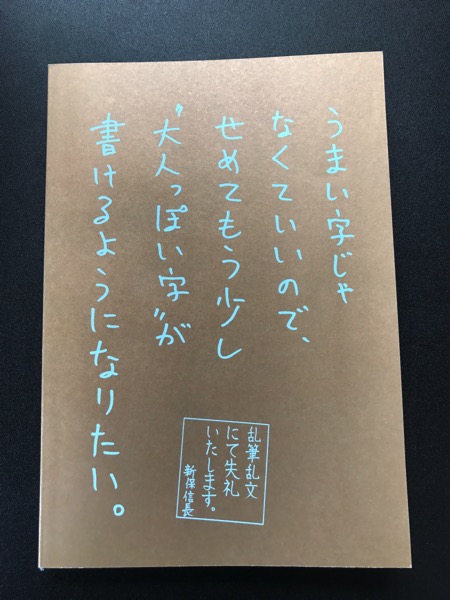 うまい字じゃ
なくていいので、
せめてもう少し
〝大人っぽい字〟が
書けるようになりたい。
乱筆乱文
にて失礼
いたします。
新保信長